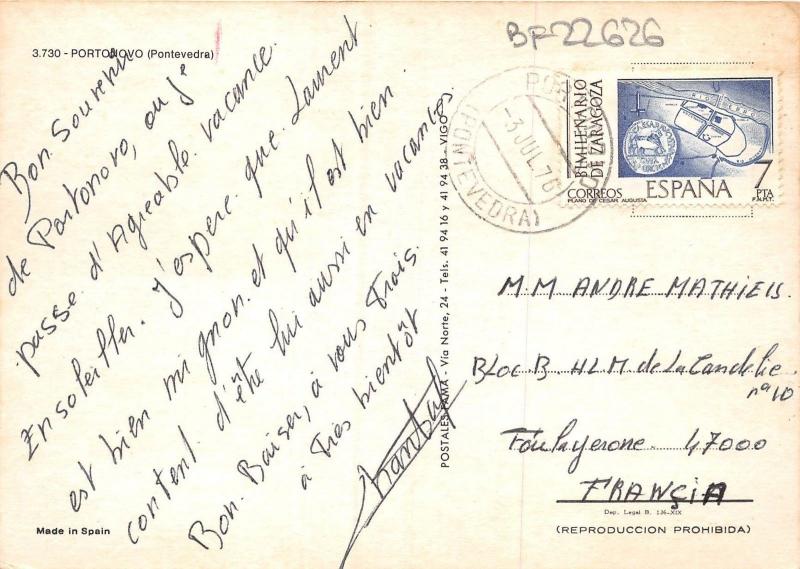 BF22626
3.730 - PORTONOVO (Pontevedra)
Bon Souvenir
de Portonovo, ou je
passe d'Agreable vacance.
Ensoleiller. J'espere que Laurent
est bien mi gnon et qu'il est bien
content d'être lui aussi en vacances.
Bon Baiser, à vous Trois
à Très bientôt
Made in Spain
POSTALES FAMA - Vía Norte, 24 - Tels. 41 94 16 y 41 94 38 - VIGO
-3 JUL.76
(PONTEVEDRA)
BIMILENARIO
DE ZARAGOZA
RIO EBRO
CORREOS ESPAÑA 7 PTA
PLANO DE CESAR AUGUSTA F.N.M.T.
M.M ANDRE MATHIEIS
BLOC.B HLM de La Candelie
nº 10
Foulayerone 47000
FRANÇIA
Dep. Legal B. 136-XIX
(REPRODUCCION PROHIBIDA)